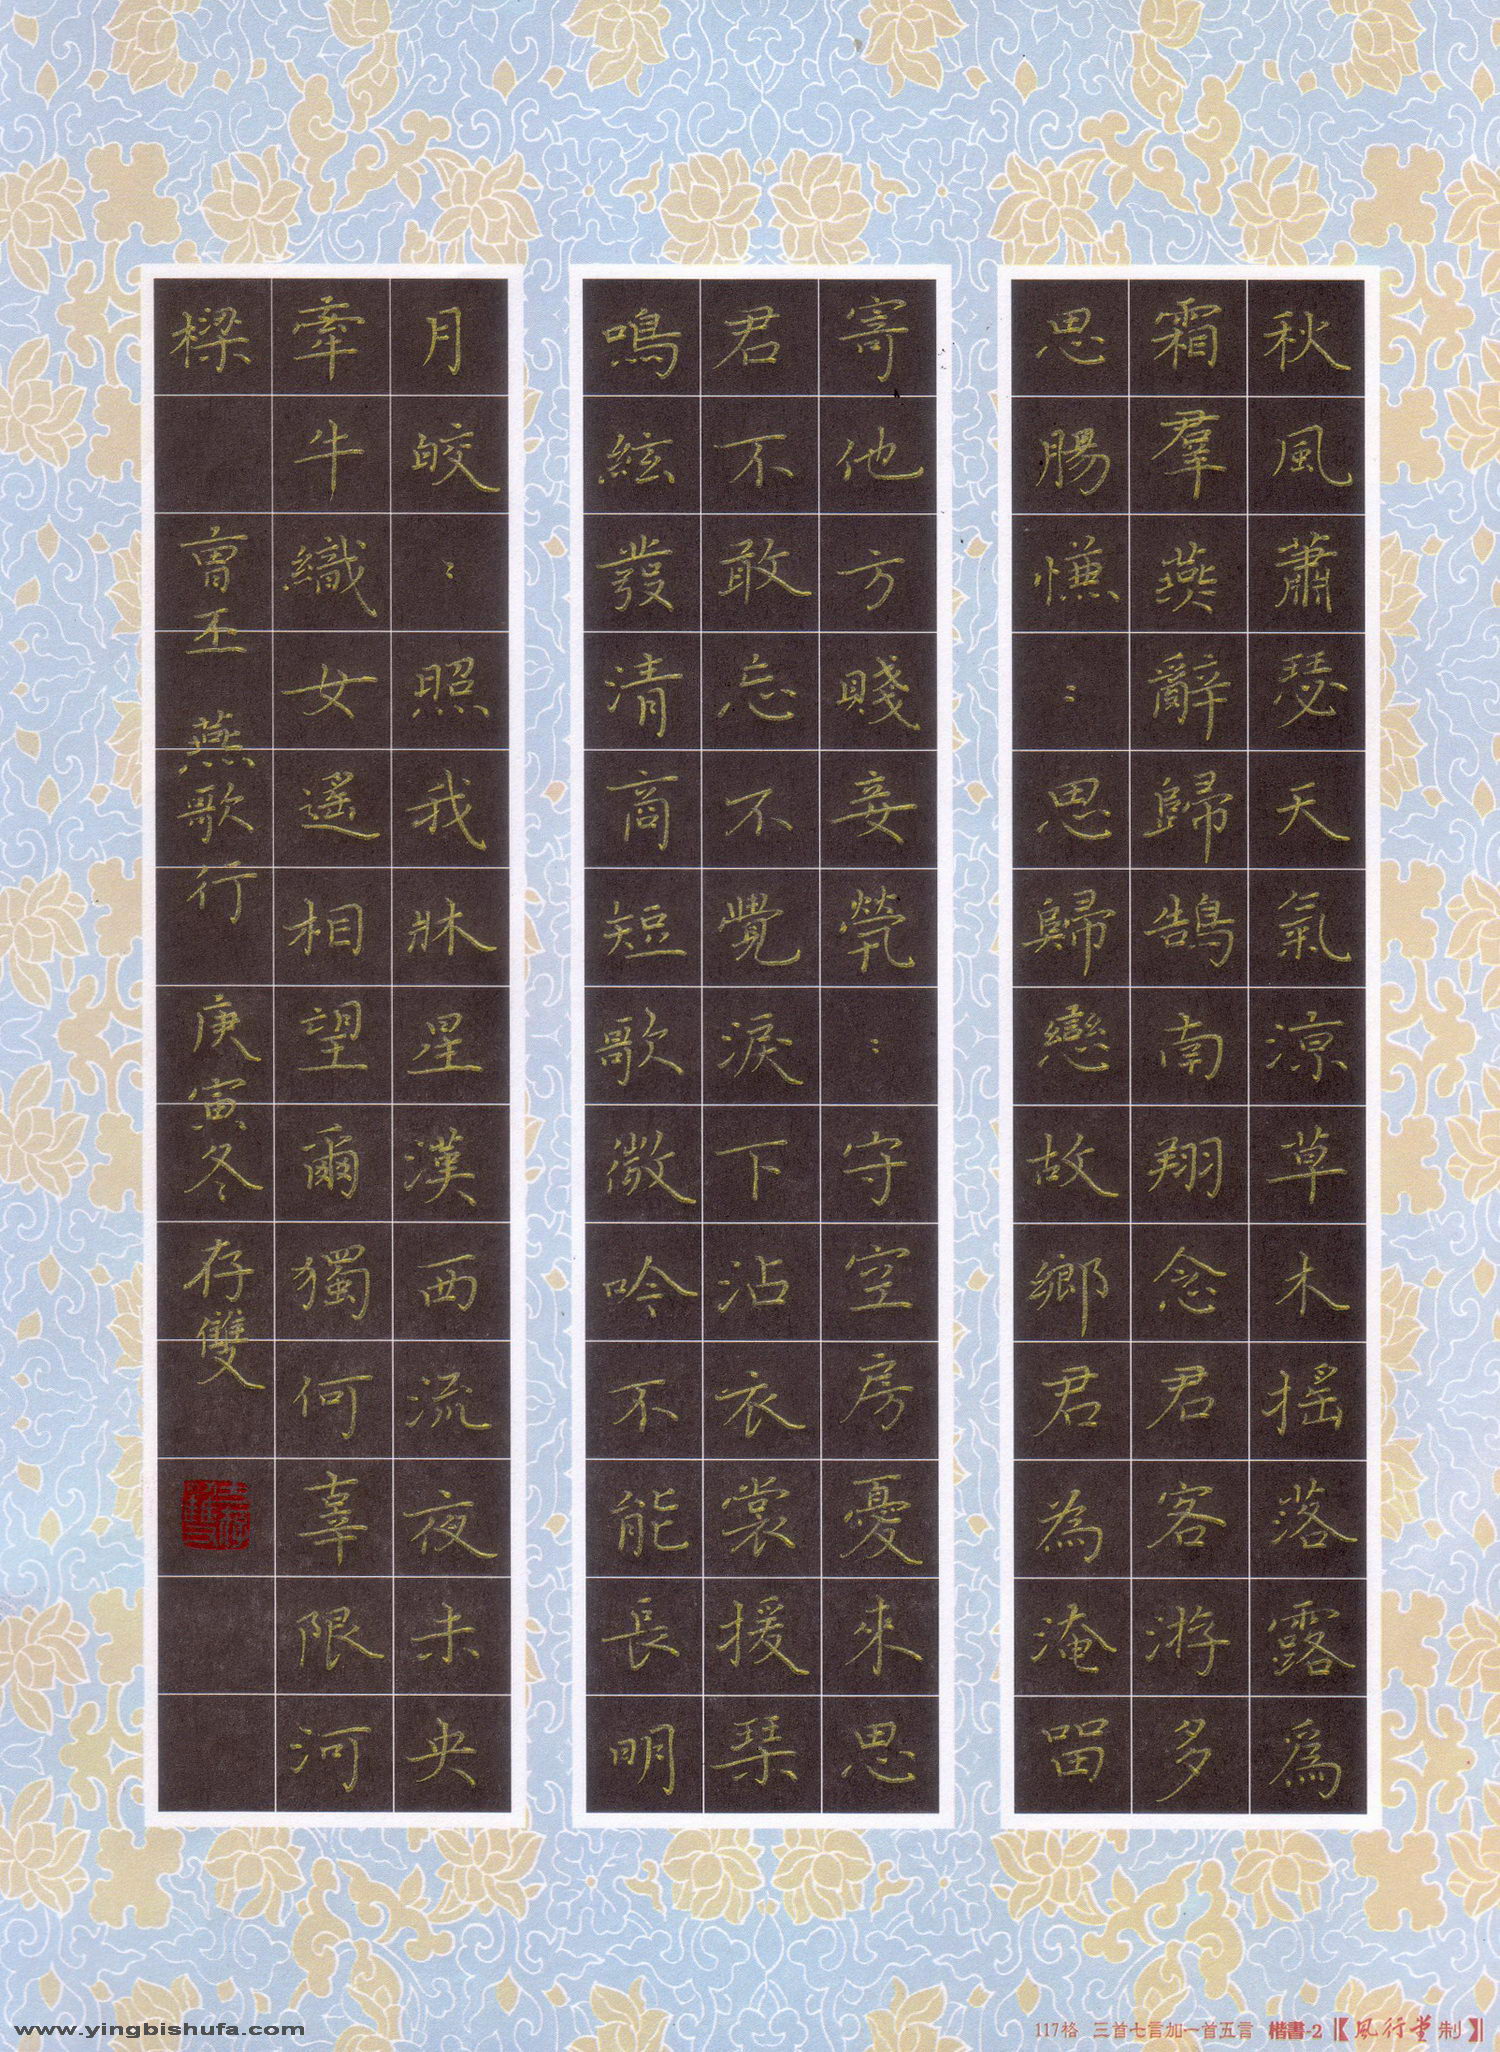 秋風蕭瑟天氣涼草木摇落露爲
霜羣燕辭歸鵠南翔念君客游多
思腸慊：思歸戀故鄉君為淹留
寄他方賤妾煢：守空房憂來思
君不敢忘不覺淚下沾衣裳援琴
鳴絃發清商短歌微吟不能長明
月皎：照我牀星漢西流夜未央
牽牛織女遥相望爾獨何辜限河
樑 曹丕 燕歌行 庚寅冬 存雙
www.yingbishufa.com
117格 三首七言加一首五言 楷書-2 【風行堂制】